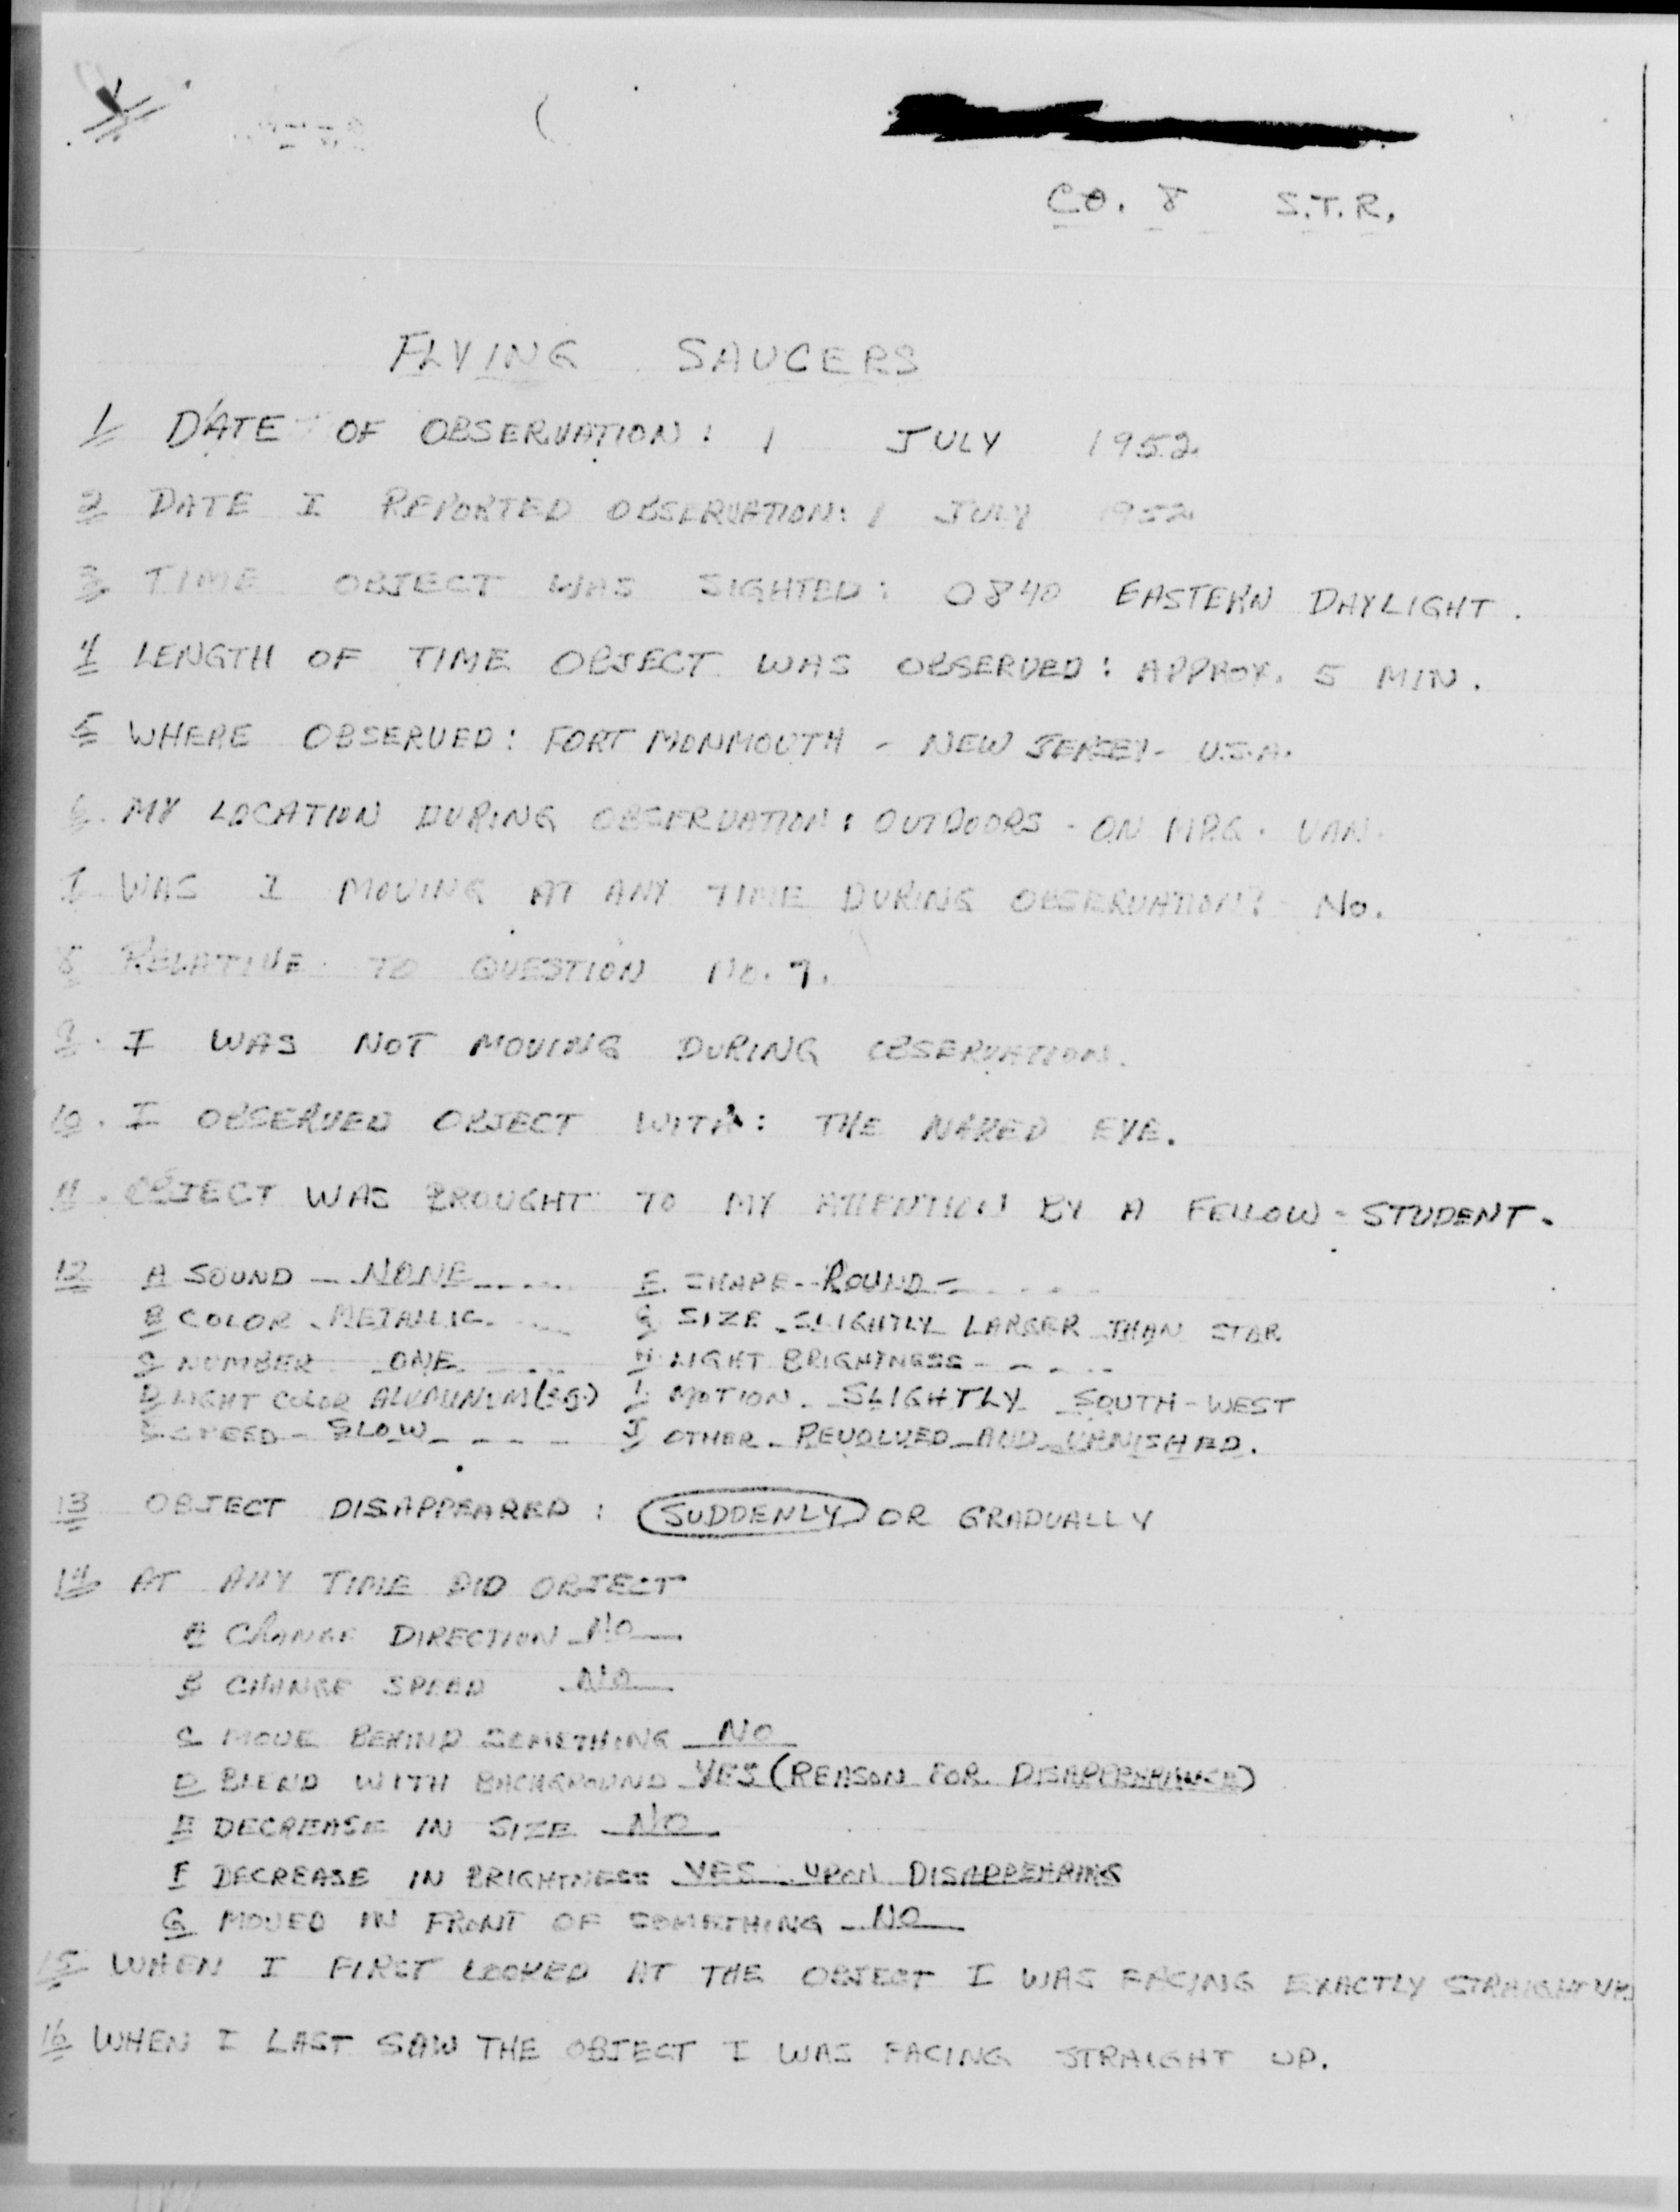 CO. 8 S.T.R.
FLYING SAUCERS
1 DATE OF OBSERVATION: 1 JULY 1952
2 DATE I REPORTED OBSERVATION: 1 JULY 1952
3 TIME OBJECT WAS SIGHTED: 0840 EASTERN DAYLIGHT.
4 LENGTH OF TIME OBJECT WAS OBSERVED: APPROX. 5 MIN.
5 WHERE OBSERVED: FORT MONMOUTH - NEW JERSEY - U.S.A.
6. MY LOCATION DURING OBSERVATION: OUTDOORS - ON MPQ. VAN.
7 WAS I MOVING AT ANY TIME DURING OBSERVATION? No.
8 RELATIVE TO QUESTION NO. 7.
9. I WAS NOT MOVING DURING OBSERVATION.
10. I OBSERVED OBJECT WITH: THE NAKED EYE.
11. OBJECT WAS BROUGHT TO MY ATTENTION BY A FELLOW-STUDENT.
12 A SOUND - NONE F. SHAPE - ROUND -
B COLOR - METALLIC G SIZE - SLIGHTLY LARGER THAN STAR
C NUMBER ONE H LIGHT BRIGHTNESS -
D LIGHT COLOR I MOTION - SLIGHTLY SOUTH-WEST
E SPEED - SLOW J OTHER - REVOLVED AND VANISHED.
13 OBJECT DISAPPEARED: SUDDENLY OR GRADUALLY
14 AT ANY TIME DID OBJECT
A CHANGE DIRECTION NO
B CHANGE SPEED NO
C MOVE BEHIND SOMETHING NO
D BLEND WITH BACKGROUND YES (REASON FOR DISAPPEARANCE)
E DECREASE IN SIZE NO
F DECREASE IN BRIGHTNESS YES UPON DISAPPEARING
G MOVED IN FRONT OF SOMETHING NO
15 WHEN I FIRST LOOKED AT THE OBJECT I WAS FACING EXACTLY STRAIGHT UP.
16 WHEN I LAST SAW THE OBJECT I WAS FACING STRAIGHT UP.